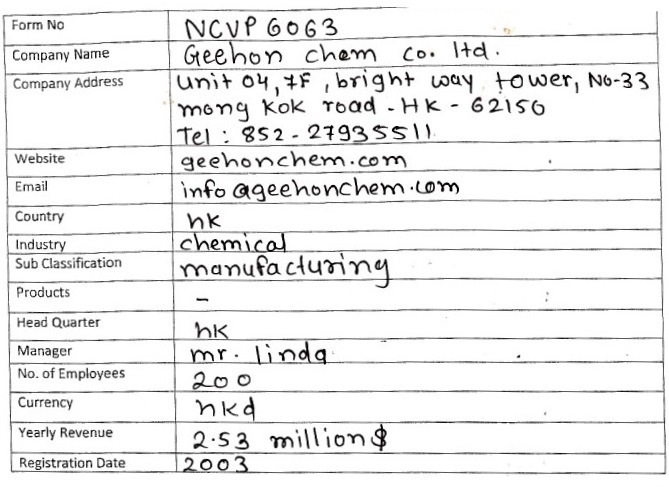 Form No NCVP 6063
Company Name Geehon chem co. ltd.
Company Address unit 04, 7F, bright way tower, No-33
mong kok road - HK - 62150
Tel : 852 - 27935511
Website geehonchem.com
Email info@geehonchem.com
Country hk
Industry chemical
Sub Classification manufacturing
Products -
Head Quarter hk
Manager mr. linda
No. of Employees 200
Currency hkd
Yearly Revenue 2.53 million $
Registration Date 2003